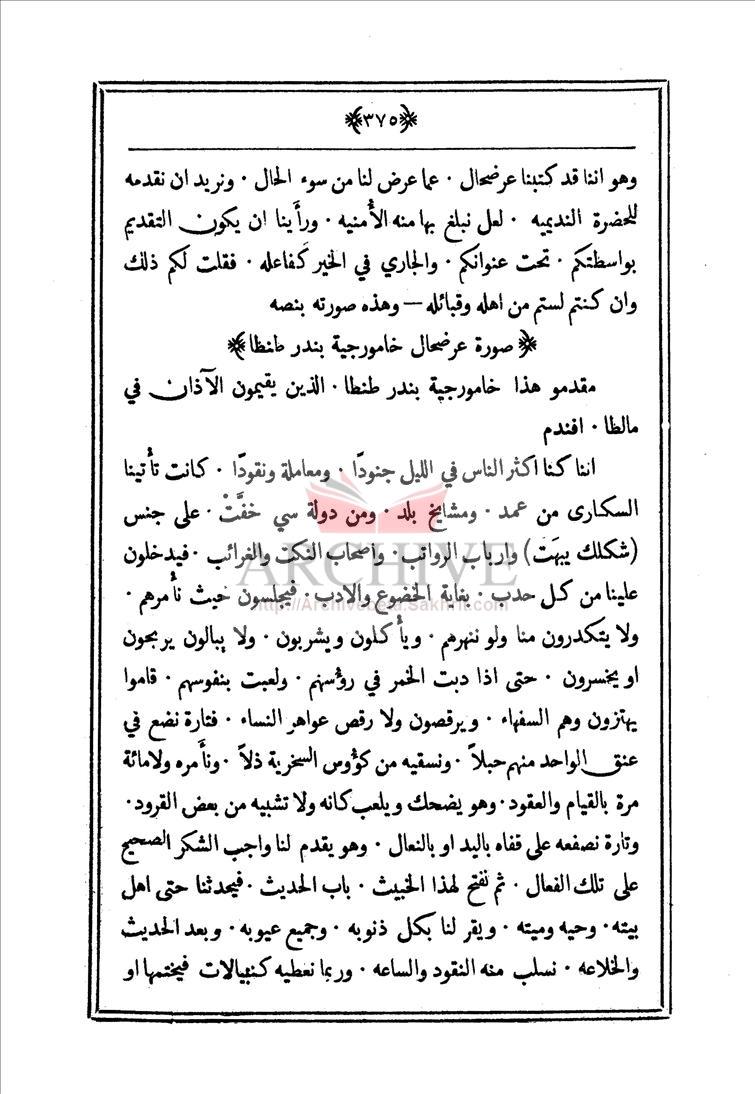 ﴿٣٧٥﴾
وهو اننا قد كتبنا عرضحال ٠ عما عرض لنا من سوء الحال ٠ ونريد ان نقدمه
للحضرة النديميه ٠ لعل نبلغ بها منه الأمنيه ٠ ورأينا ان يكون التقديم
بواسطتكم ٠ تحت عنوانكم ٠ والجاري في الخير كفاعله ٠ فقلت لكم ذلك
وان كنتم لستم من اهله وقبائله — وهذه صورته بنصه
﴿ صورة عرضحال خامورجية بندر طنطا ﴾
مقدمو هذا خامورجية بندر طنطا ٠ الذين يقيمون الآذان في
مالطا ٠ افندم
اننا كنا اكثر الناس في الليل جنودًا ٠ ومعاملة ونقودًا ٠ كانت تأتينا
السكارى من عمد ٠ ومشايخ بلد ٠ ومن دولة سي خفَّتْ ٠ على جنس
(شكلك يبهَت) وارباب الرواتب ٠ واصحاب النكت والغرائب ٠ فيدخلون
علينا من كل حدب ٠ بغاية الخضوع والادب ٠ فيجلسون حيث نأمرهم ٠
ولا يتكدرون منا ولو ننهرهم ٠ ويأكلون ويشربون ٠ ولا يبالون يربحون
او يخسرون ٠ حتى اذا دبت الخمر في رؤسهم ٠ ولعبت بنفوسهم ٠ قاموا
يهتزون وهم السفهاء ٠ ويرقصون ولا رقص عواهر النساء ٠ فتارة نضع في
عنق الواحد منهم حبلاً ٠ ونسقيه من كؤوس السخرية ذلاً ٠ ونأمره ولا مائة
مرة بالقيام والعقود ٠ وهو يضحك ويلعب كانه ولا تشبيه من بعض القرود ٠
وتارة نصفعه على قفاه باليد او بالنعال ٠ وهو يقدم لنا واجب الشكر الصحيح
على تلك الفعال ٠ ثم نفتح لهذا الخبيث ٠ باب الحديث ٠ فيحدثنا حتى اهل
بيته ٠ وحيه وميته ٠ ويقر لنا بكل ذنوبه ٠ وجميع عيوبه ٠ وبعد الحديث
والخلاعه ٠ نسلب منه النقود والساعه ٠ وربما نعطيه كنبيالات فيختمها او
ARCHIVE
http://Archivebeta.Sakhrit.com